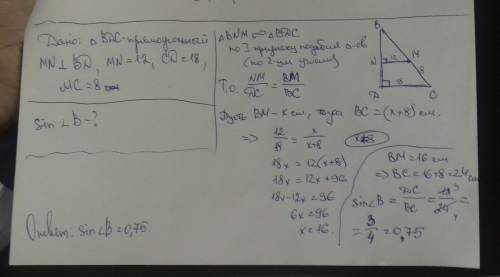 Дано: △ВДС-прямоугольный
MN⊥ВД, MN=12, СД=18,
MC=8 см
sin∠B-?
Ответ: sin∠B=0,75.
△BNM ∾ △ВДС
по 3 признаку подобия △-ов
(по 2-ум углам)
Т.О. NM/ДС = BM/BC
Пусть BM-x см, тогда BC=(x+8) см.
⇒ 12/18 = x/x+8
18x=12(x+8)
18x=12x+96
18x-12x=96
6x=96
x=16.
B
N 12 M
8
Д 18 C
x+8
BM=16 см
⇒ BC=16+8=24 см
sin∠B= ДС/BC = 18 3/24 4 =
= 3/4 =0,75